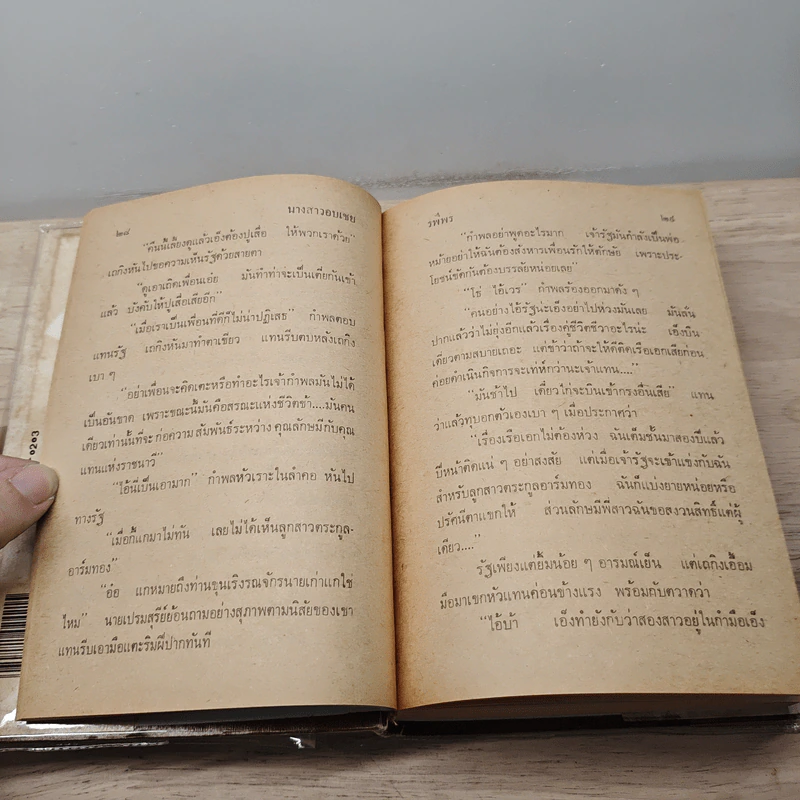 ๒๘ นางสาวอบเชย
"คืนนี้เลี้ยงดูแล้วเอ็งต้องปูเสื่อ ให้พวกเราด้วย"
เถกิงหันไปขอความเห็นรัฐด้วยสายตา
"ดูเอาเถิดเพื่อนเอ๋ย มันทำท่าจะเป็นเตี่ยกันเช้า
แล้ว บังคับให้ปูเสื่อเสียอีก"
"เมื่อเราเป็นเพื่อนที่ดีก็ไม่น่าปฏิเสธ" กำพลตอบ
แทนรัฐ เถกิงหันมาทำตาเขียว แทนรีบตบหลังเถกิง
เบา ๆ
"อย่าเพื่อนจะคิดเตะหรือทำอะไรเจ้ากำพลมันไม่ได้
เป็นอันขาด เพราะขณะนี้มันคือสรณะแห่งชีวิตข้า....มันคน
เดียวเท่านี้ที่จะ ก่อความ สัมพันธ์ระหว่าง คุณลักษมีกับคุณ
แทนแห่งราชนาวี"
"ไอ้นี่เป็นเอามาก" กำพลหัวเราะในลำคอ หันไป
ทางรัฐ
"เมื่อกี้แกมาไม่ทัน เลยไม่ได้เห็นลูกสาวตระกูล-
อาร์มทอง"
"อ๋อ แกหมายถึงท่านขุนเริงรณจักรนายเก่าแกใช่
ไหม" นายเปรมสุรีย์ย้อนถามอย่างสุภาพตามนิสัยของเขา
แทนรีบเอามือแตะริมฝีปากทันที
รพีพร ๒๙
"กำพลอย่าพูดอะไรมาก เจ้ารัฐมันกำลังเป็นพ่อ
หม้ายอย่าให้ฉันต้องสังหารเพื่อนรักให้ตักษัย เพราะประ-
โยชน์ขัดกันต้องบรรลัยหน่อยเลย"
"โธ่ ไอ้เวร" กำพลร้องออกมาดัง ๆ
"คนอย่างไอ้รัฐน่ะเอ็งอย่าไปห่วงมันเลย มันลั่น
ปากแล้วว่าไม่ยุ่งอีกแล้วเรื่องคู่ชีวิตชีวาอะไรน่ะ เอ็งบิน
เดี่ยวตามสบายเถอะ แต่ข้าว่าถ้าจะให้ดีติดเรือเอกเสียก่อน
ค่อยดำเนินกิจการจะเท่ห์กว่านะเจ้าแทน...."
"มันช้าไป เดี๋ยวไก่จะบินเข้ากรงอื่นเสีย" แทน
ว่าแล้วทุบอกตัวเองเบา ๆ เมื่อประกาศว่า
"เรื่องเรือเอกไม่ต้องห่วง ฉันเต็มขั้นมาสองปีแล้ว
ปีหน้าติดแน่ ๆ อย่าสงสัย แต่เมื่อเจ้ารัฐจะเข้าแข่งกับฉัน
สำหรับลูกสาวตระกูลอาร์มทอง ฉันก็แบ่งยายหน่อยหรือ
ปรัศนีตาแขกให้ ส่วนลักษมีพี่สาวฉันขอสงวนสิทธิ์แต่ผู้
เดียว...."
รัฐเพียงแต่ยิ้มน้อย ๆ อารมณ์เย็น แต่เถกิงเอื้อม
มือมาเขกหัวแทนค่อนข้างแรง พร้อมกับตวาดว่า
"ไอ้บ้า เอ็งทำยังกับว่าสองสาวอยู่ในกำมือเอ็ง